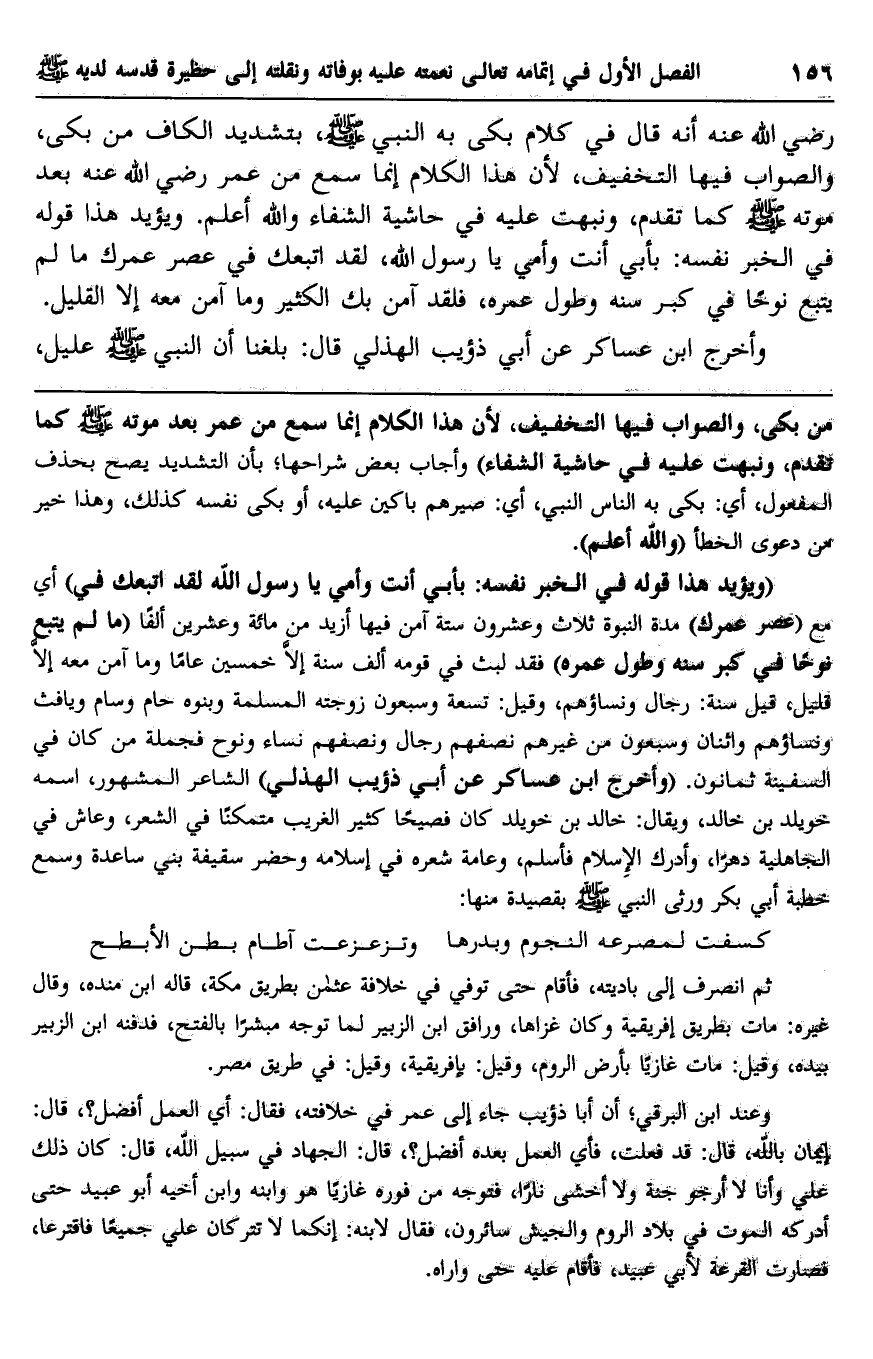 ١٥٦ الفصل الأول في إتمامه تعالى نعمته عليه بوفاته ونقلته إلى حظيرة قدسه لديه ﷺ
رضي الله عنه أنه قال في كلام بكى به النبي ﷺ، بتشديد الكاف من بكى،
والصواب فيها التخفيف، لأن هذا الكلام إنما سمع من عمر رضي الله عنه بعد
موته ﷺ كما تقدم، ونبهت عليه في حاشية الشفاء والله أعلم. ويؤيد هذا قوله
في الخبر نفسه: بأبي أنت وأمي يا رسول الله، لقد اتبعك في عصر عمرك ما لم
يتبع نوحًا في كبر سنه وطول عمره، فلقد آمن بك الكثير وما آمن معه إلا القليل.
وأخرج ابن عساكر عن أبي ذؤيب الهذلي قال: بلغنا أن النبي ﷺ عليل،
من بكى، والصواب فيها التخفيف، لأن هذا الكلام إنما سمع من عمر بعد موته ﷺ كما
تقدم، ونبهت عليه في حاشية الشفاء) وأجاب بعض شراحها؛ بأن التشديد يصح بحذف
المفعول، أي: بكى به الناس النبي، أي: صيرهم باكين عليه، أو بكى نفسه كذلك، وهذا خير
من دعوى الخطأ (والله أعلم).
(ويؤيد هذا قوله في الخبر نفسه: بأبي أنت وأمي يا رسول الله لقد اتبعك في) أي
مع (عصر عمرك) مدة النبوة ثلاث وعشرون ستة آمن فيها أزيد من مائة وعشرين ألفًا (ما لم يتبع
نوحًا في كبر سنه وطول عمره) فقد لبث في قومه ألف سنة إلاَّ خمسين عامًا وما آمن معه إلاَّ
قليل، قيل ستة: رجال ونساؤهم، وقيل: تسعة وسبعون زوجته المسلمة وبنوه حام وسام ويافث
ونساؤهم واثنان وسبعون من غيرهم نصفهم رجال ونصفهم نساء ونوح فجملة من كان في
السفينة ثمانون. (وأخرج ابن عساكر عن أبي ذؤيب الهذلي) الشاعر المشهور، اسمه
خويلد بن خالد، ويقال: خالد بن خويلد كان فصيحًا كثير الغريب متمكنًا في الشعر، وعاش في
الجاهلية دهرًا، وأدرك الإسلام فأسلم، وعامة شعره في إسلامه وحضر سقيفة بني ساعدة وسمع
خطبة أبي بكر ورثى النبي ﷺ بقصيدة منها:
كسفت لمصرعه النجوم وبدرها وتزعزعت آطام بطن الأبطح
ثم انصرف إلى باديته، فأقام حتى توفي في خلافة عثمٰن بطريق مكة، قاله ابن منده، وقال
غيره: مات بطريق إفريقية وكان غزاها، ورافق ابن الزبير لما توجه مبشرًا بالفتح، فدفنه ابن الزبير
بيده، وقيل: مات غازيًا بأرض الروم، وقيل: بإفريقية، وقيل: في طريق مصر.
وعند ابن البرقي؛ أن أبا ذؤيب جاء إلى عمر في خلافته، فقال: أي العمل أفضل؟، قال:
إيمان بالله، قال: قد فعلت، فأي العمل بعده أفضل؟، قال: الجهاد في سبيل الله، قال: كان ذلك
علي وأنا لا أرجو جنة ولا أخشى نارًا، فتوجه من فوره غازيًا هو وابنه وابن أخيه أبو عبيد حتى
أدركه الموت في بلاد الروم والجيش سائرون، فقال لابنه: إنكما لا تتركان علي جميعًا فاقترعا،
فصارت القرعة لأبي عبيد، فأقام عليه حتى واراه.